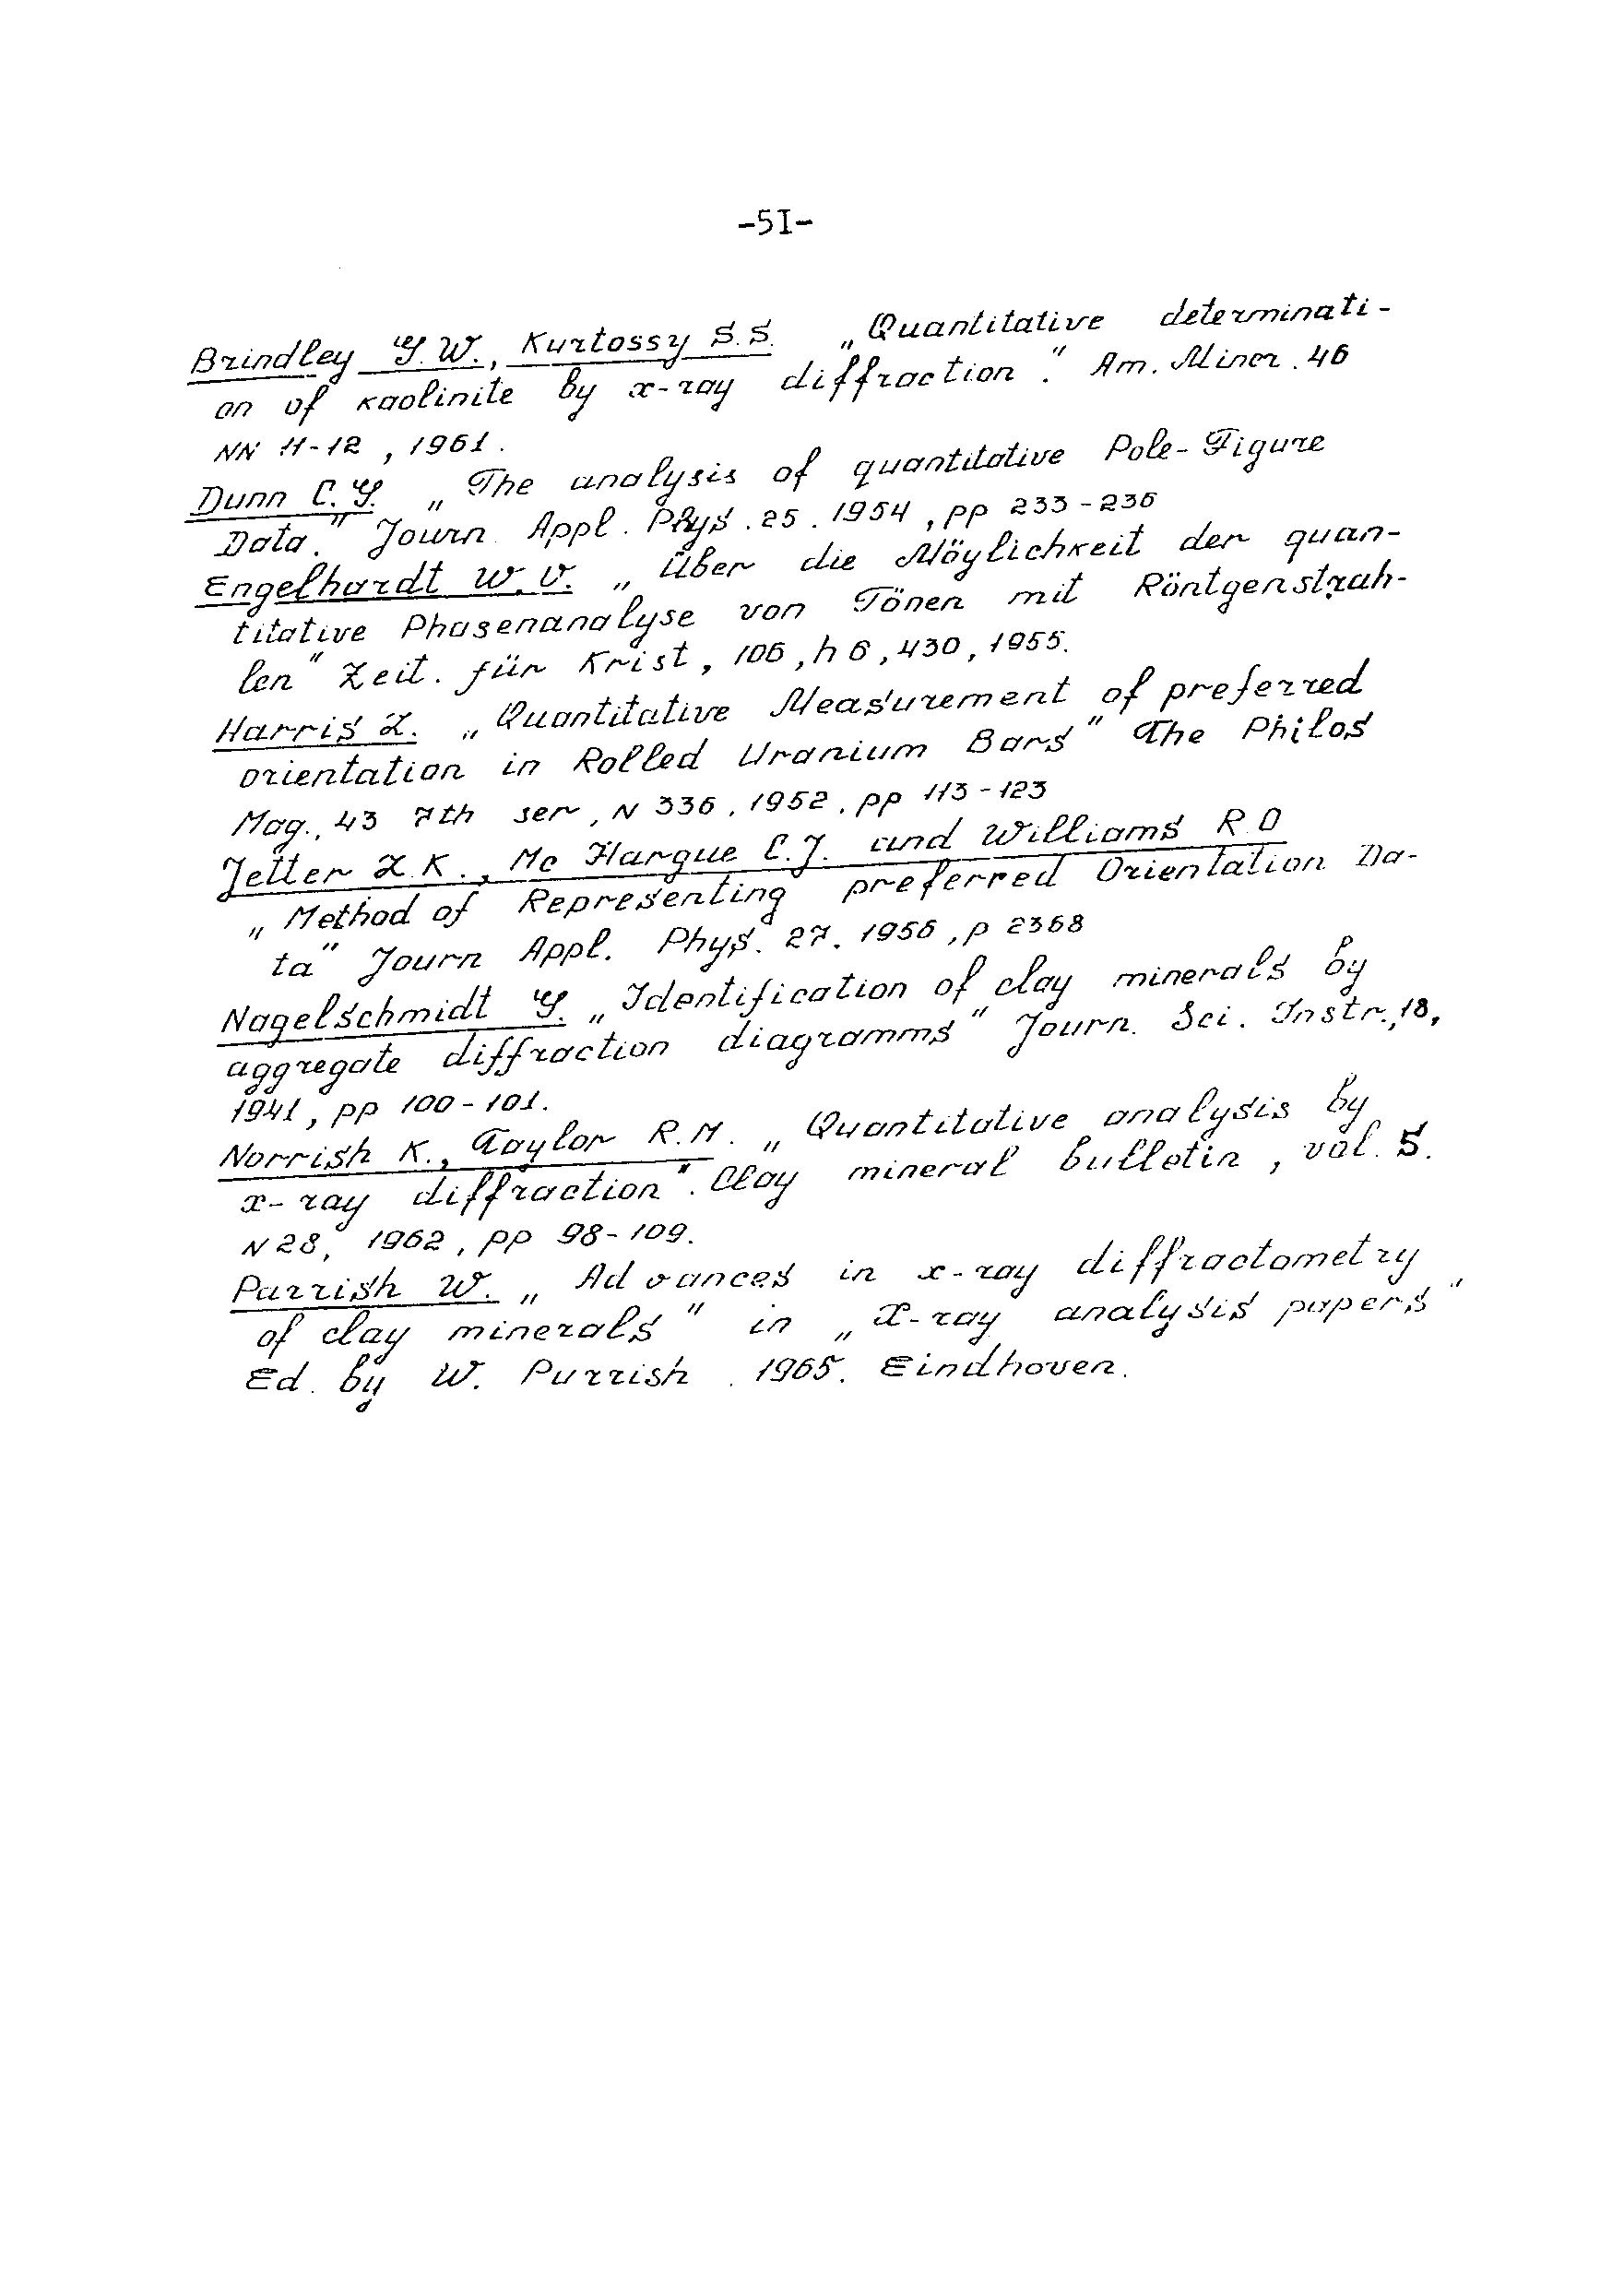 -5I-
Brindley G.W., Kurtossy S.S. „Quantitative determinati-
on of kaolinite by x-ray diffraction." Am. Miner. 46
NN 11-12, 1961.
Dunn C.G. „The analysis of quantitative Pole-Figure
Data." Journ. Appl. Phys. 25. 1954, pp 233-236
Engelhardt W.V. „Über die Möylichkeit der quan-
titative Phasenanalyse von Tönen mit Röntgenstrah-
len" Zeit. für Krist, 106, h 6, 430, 1955.
Harris L. „Quantitative Measurement of preferred
orientation in Rolled Uranium Bars" The Philos
Mag., 43 7th ser, N 336, 1952, pp 113-123
Jetter L.K., Mc Hargue C.J. and Williams R O
„Method of Representing preferred Orientation Da-
ta" Journ Appl. Phys. 27. 1956, p 2368
Nagelschmidt G. „Identification of clay minerals by
aggregate diffraction diagramms" Journ. Sci. Instr., 18,
1941, pp 100-101.
Norrish K., Taylor R.M. „Quantitative analysis by
x-ray diffraction". Clay mineral bulletin, vol. 5.
N 28, 1962, pp 98-109.
Parrish W. „Advances in x-ray diffractometry
of clay minerals" in „X-ray analysis papers"
Ed. by W. Parrish. 1965. Eindhoven.